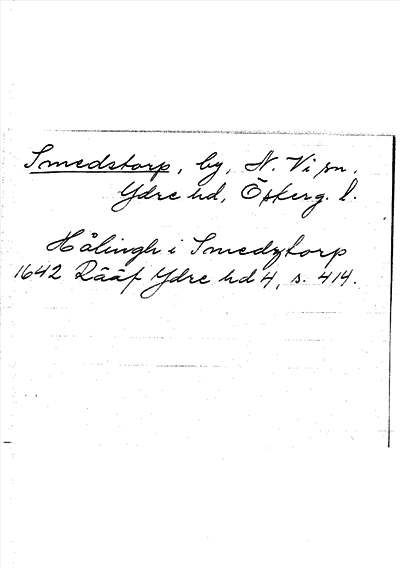 Smedstorp, by, N. Vi sn,
Ydre hd, Österg. l.
Hålingh i Smedztorp
1642 Rääf Ydre hd 4, s. 414.